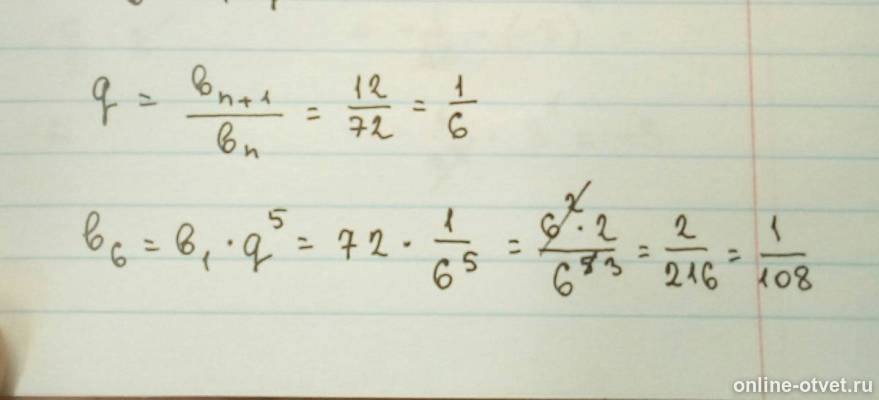 q = вₙ₊₁/вₙ = 12/72 = 1/6
в₆ = в₁ · q⁵ = 72 · 1/6⁵ = 6² · 2/6⁵ ³ = 2/216 = 1/108
online-otvet.ru